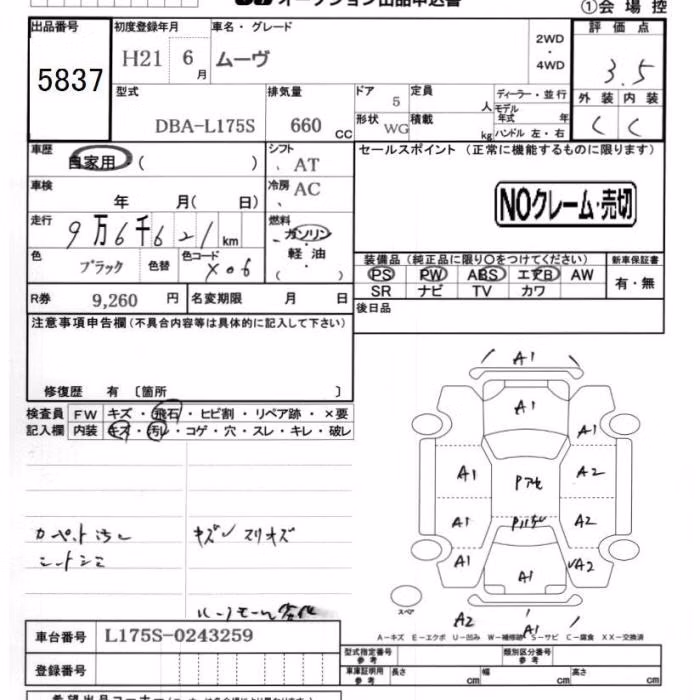 オークション出品申込書
①会場控
出品番号
5837
初度登録年月
H21 6月
車名・グレード
ムーヴ
2WD
・
4WD
評価点
3.5
外装 内装
C C
型式
DBA-L175S
排気量
660 CC
ドア
5
定員
人
形状
WG
積載
kg
ディーラー・並行
モデル年式 年
ハンドル 左・右
車歴
自家用 ( )
シフト
AT
セールスポイント (正常に機能するものに限ります)
NOクレーム・売切
車検
年 月( 日)
冷房
AC
走行
9万6千621km
燃料
ガソリン
・
軽油
( )
色
ブラック
色替
色コード
X06
装備品(純正品に限り○をつけてください)
PS PW ABS エアB AW
SR ナビ TV カワ
新車保証書
有・無
R券
9,260 円
名変期限 月 日
後日品
注意事項申告欄(不具合内容等は具体的に記入して下さい)
修復歴 有 〔箇所 〕
検査員
記入欄
FW キズ・飛石・ヒビ割・リペア跡・×要
内装 キズ・汚レ・コゲ・穴・スレ・キレ・破レ
カーペット汚レ
シートシミ
キズ スリキズ
A1
A1
A1
A1
A2
A1
A2
A1
A2
A1
A2
A1
スペア
A-キズ E-エクボ U-凹み W-補修跡 S-サビ C-腐食 XX-交換済
車台番号
L175S-0243259
登録番号
型式指定番号
参考
類別区分番号
参考
車庫証明用
参考
長さ cm
幅 cm
高さ cm
希望出品コーナー